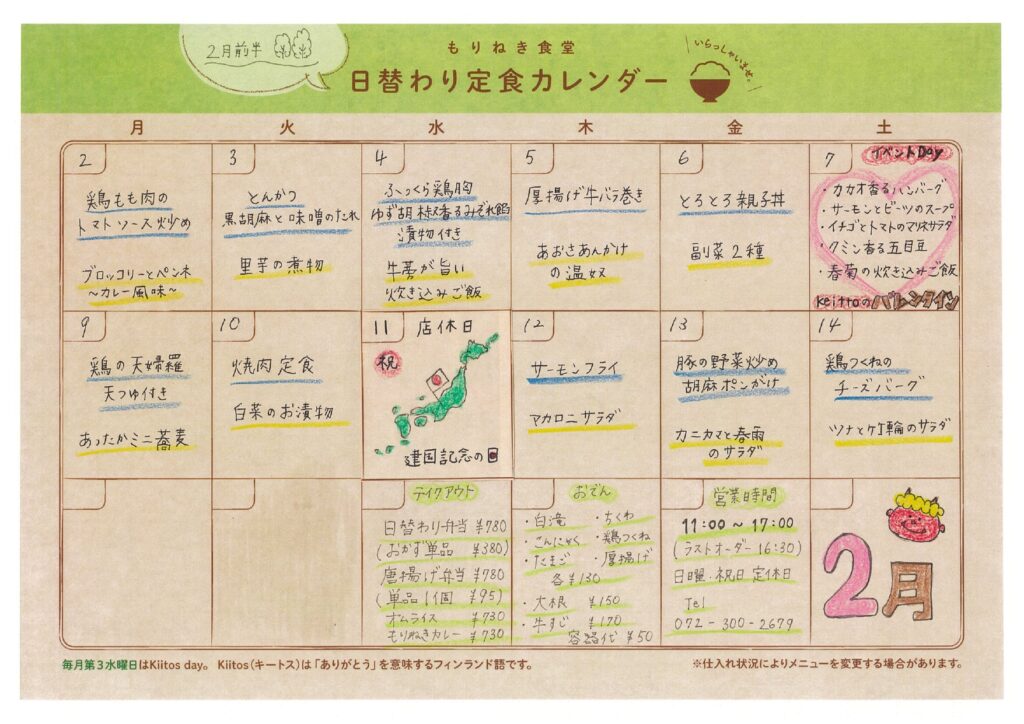 2月前半
もりねき食堂
日替わり定食カレンダー
いらっしゃいませ。
月 火 水 木 金 土
2
鶏もも肉の
トマトソース炒め
ブロッコリーとペンネ
~カレー風味~
3
とんかつ
黒胡麻と味噌のたれ
里芋の煮物
4
ふっくら鶏胸
ゆず胡椒香るみぞれ餡
漬物付き
牛蒡が旨い
炊き込みご飯
5
厚揚げ牛バラ巻き
あおさあんかけ
の温奴
6
とろとろ親子丼
副菜2種
7
イベントDay
・カカオ香るハンバーグ
・サーモンとビーツのスープ
・イチゴとトマトのマリネサラダ
・クミン香る五目豆
・春菊の炊き込みご飯
keittoのバレンタイン
9
鶏の天婦羅
天つゆ付き
あったかミニ蕎麦
10
焼肉定食
白菜のお漬物
11 店休日
祝
建国記念の日
12
サーモンフライ
マカロニサラダ
13
豚の野菜炒め
胡麻ポンがけ
カニカマと春雨
のサラダ
14
鶏つくねの
チーズバーグ
ツナと竹輪のサラダ
テイクアウト
日替わり弁当 ¥780
(おかず単品 ¥380)
唐揚げ弁当 ¥780
(単品1個 ¥95)
オムライス ¥730
もりねきカレー ¥730
おでん
・白滝 ・ちくわ
・こんにゃく ・鶏つくね
・たまご ・厚揚げ
各¥130
・大根 ¥150
・牛すじ ¥170
容器代 ¥50
営業時間
11:00~17:00
(ラストオーダー16:30)
日曜・祝日 定休日
Tel
072-300-2679
2月
毎月第3水曜日はKiitos day。 Kiitos(キートス)は「ありがとう」を意味するフィンランド語です。
※仕入れ状況によりメニューを変更する場合があります。